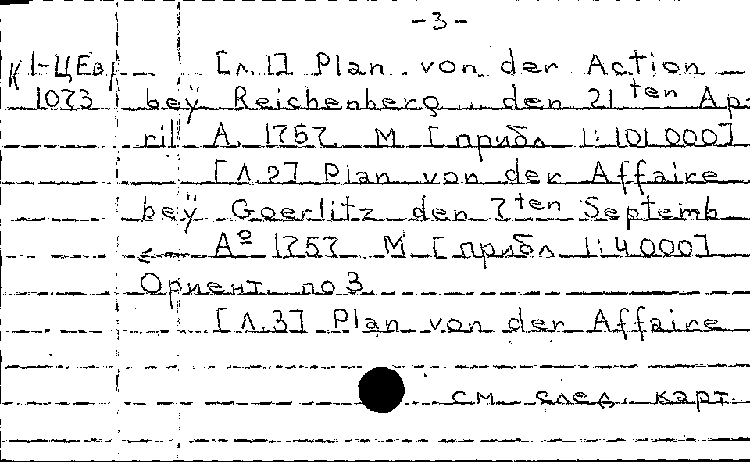 -3-
К 1-ЦЕв/ [л.1] Plan von der Action
1073 beÿ Reichenberg, den 21 ten Ap-
ril A. 1757. М [прибл 1:101 000]
[л.2] Plan von der Affaire
beÿ Goerlitz den 7ten Septemb
Aº 1757 М [прибл 1:4 000]
Ориент. по З.
[л.3] Plan von der Affaire
см. след. карт.